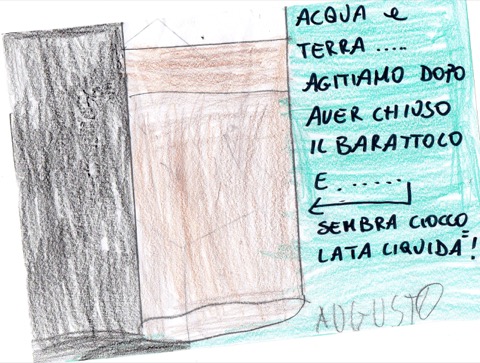 ACQUA e
TERRA .....
AGITIAMO DOPO
AVER CHIUSO
IL BARATTOLO
E .......
SEMBRA CIOCCO=
LATA LIQUIDA!
AUGUSTO